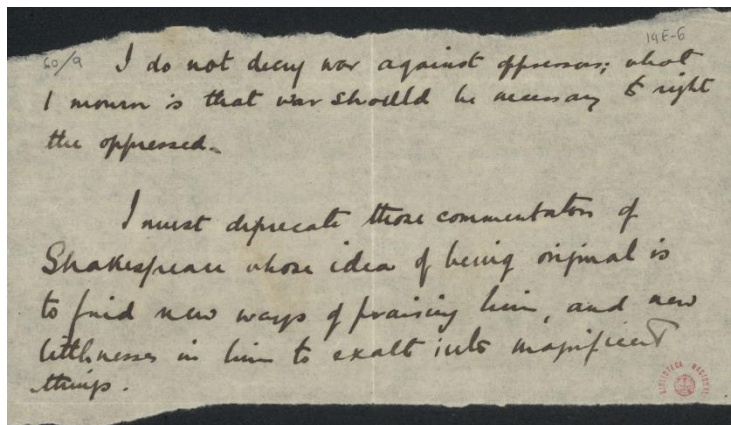 60/9
14E-6
I do not decry war against oppressors; what
I mourn is that war should be necessary to right
the oppressed.
I must deprecate those commentators of
Shakespeare whose idea of being original is
to find new ways of praising him, and new
littlenesses in him to exalt into magnificent
things.
BIBLIOTECA NACIONAL